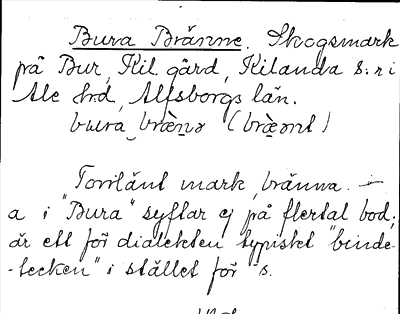 Bura Bränne. Skogsmark
på Bur, Kil gård, Kilanda s:n i
Ale hrd, Älfsborgs län.
bura‿bræ̀nə (bræ̀ənt)
Torrlänt mark, bränna. —
a i "Bura" syftar ej på flertal bod,
är ett för dialekten typiskt "binde-
-tecken" i stället för -s.